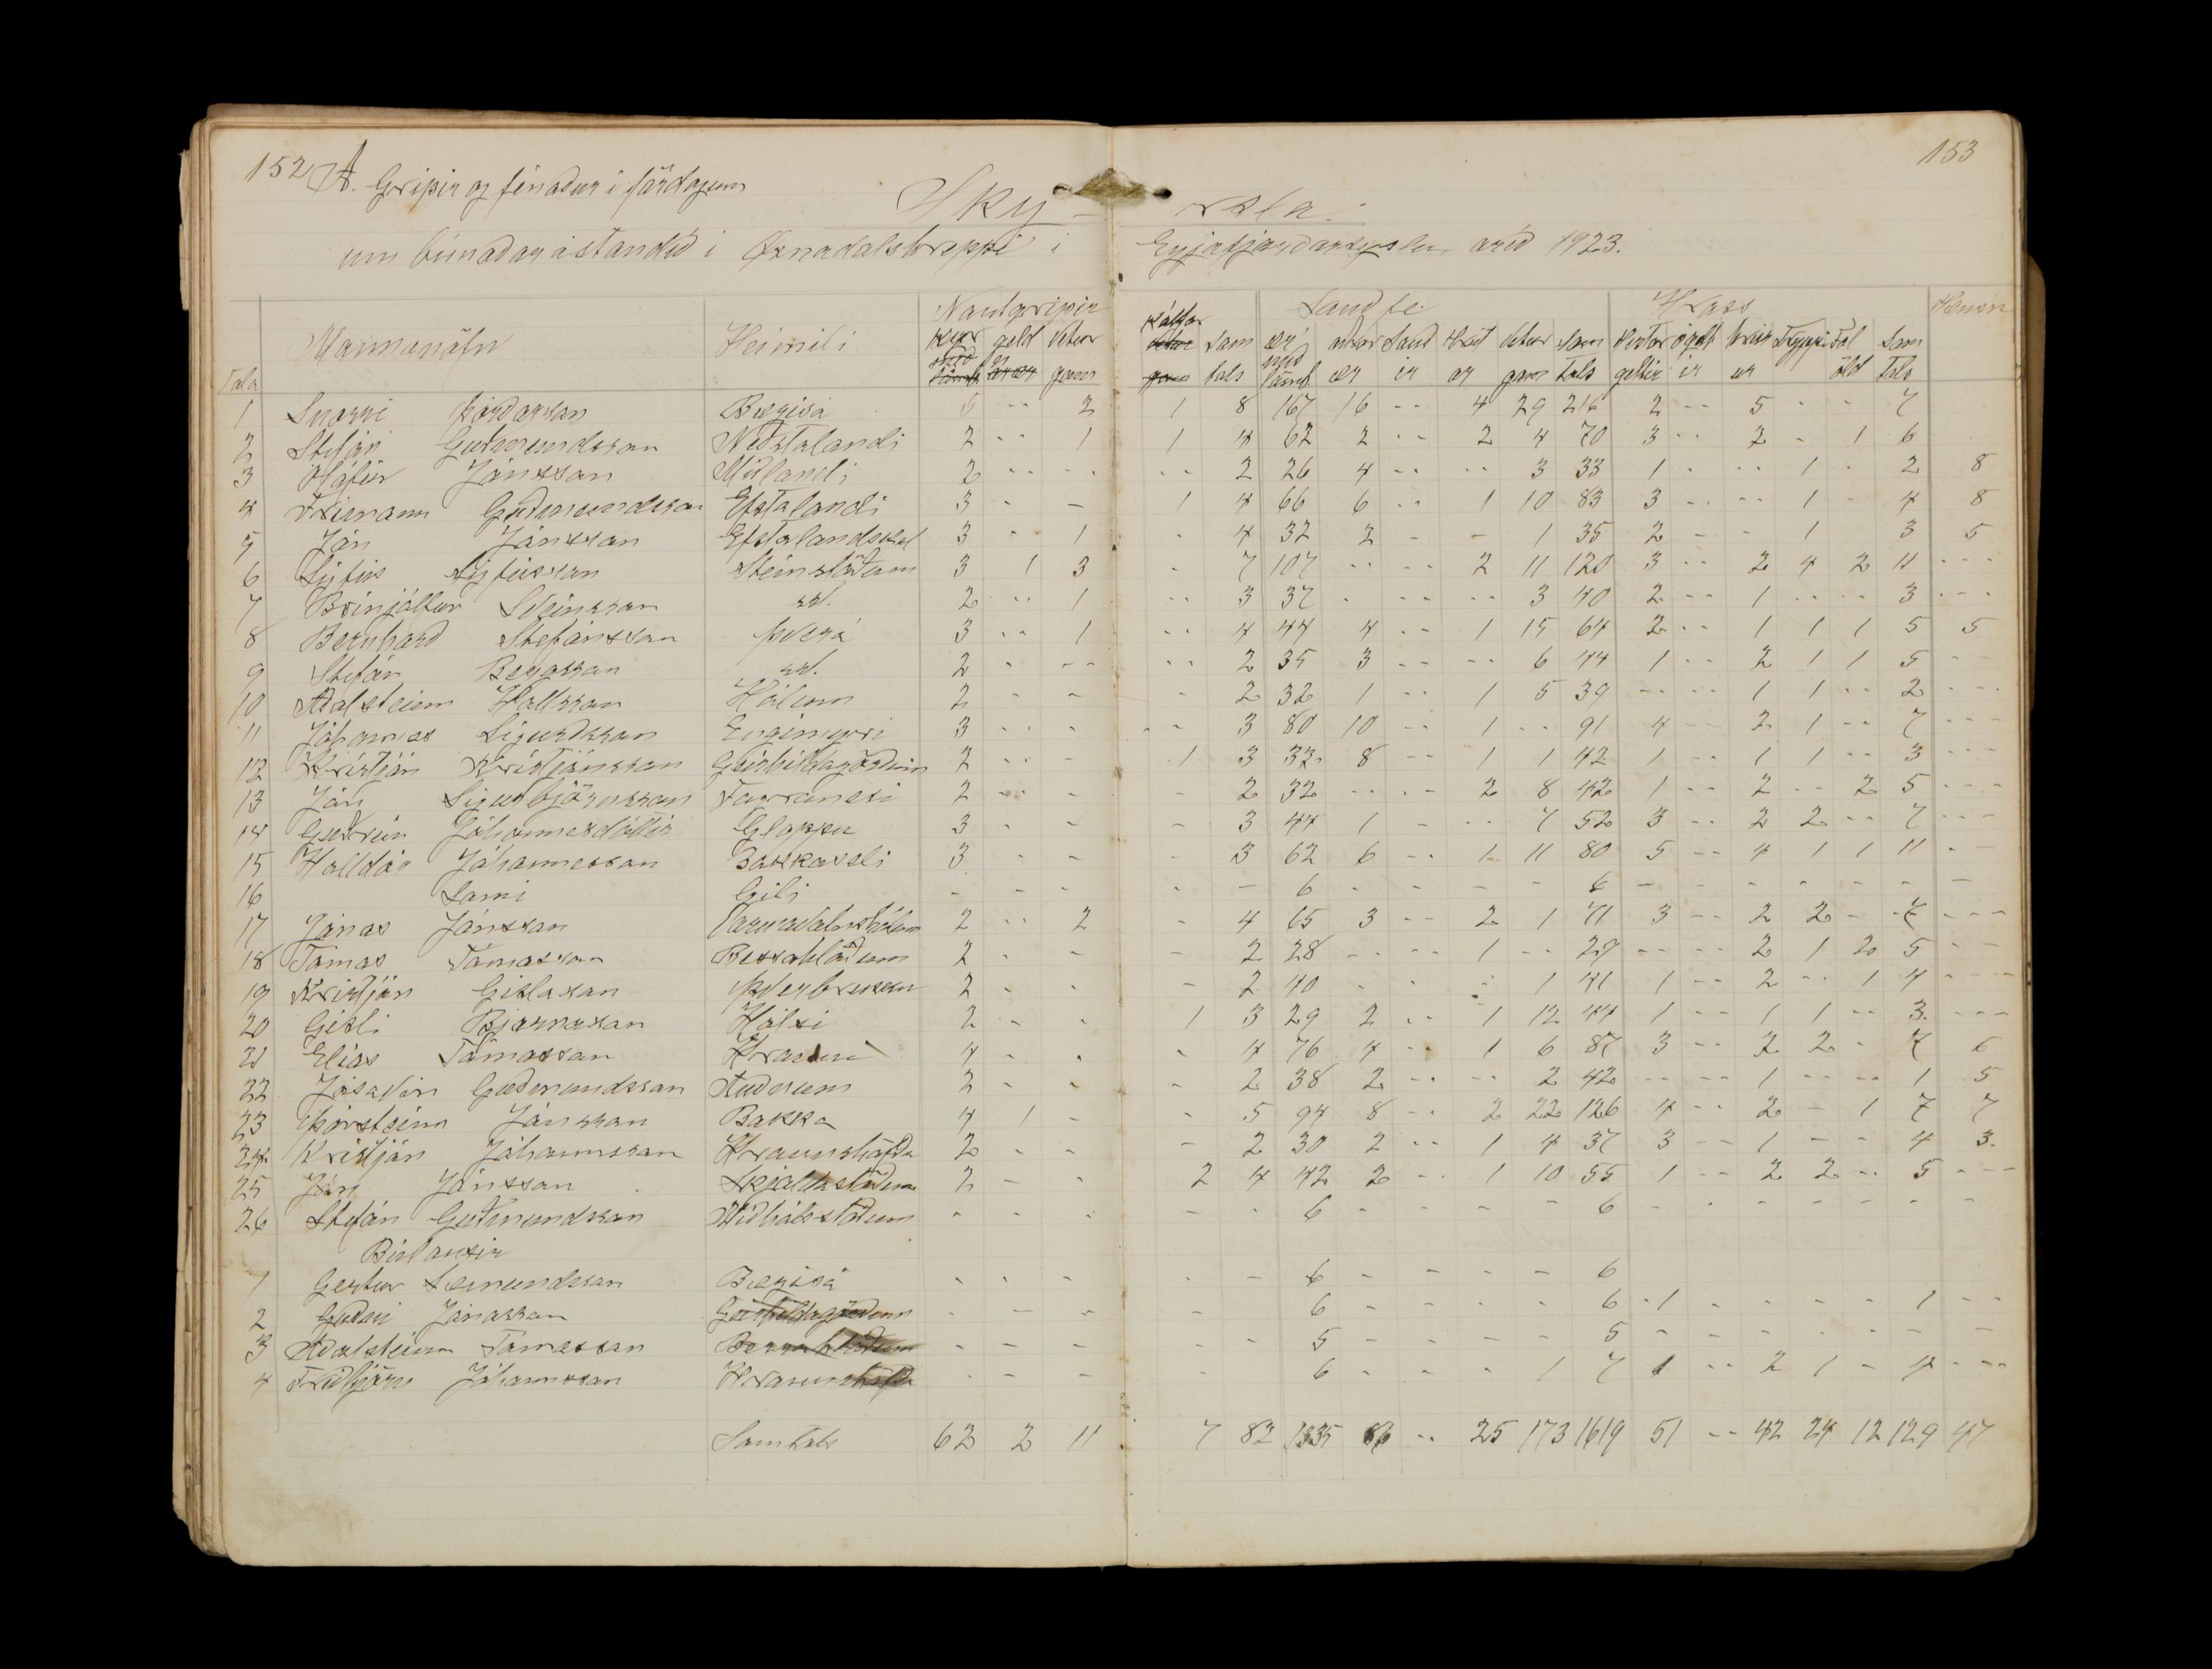 152 A. Gripir og fénaður í fardögum 153
Sky- rsla.
um búnaðarástandið í Öxnadalshreppi í Eyjafjarðarsyslu, árið 1923.
Nautgripir Sauðfé Hross Hænsn
Tala Mannanöfn Heimili kýr geld vetur kálfar sam ær aðrar Sauð Hrút vetur sam Hestar ógelt hriss Tryppi Fol Sam
gam tals með lömb. ær ir ar gam tals geltir ir ur öld tals
1 Snorri Þórðarson Bægisá 5 -- 2 1 8 167 16 -- 4 29 216 2 -- 5 - - 7
2 Stefán Guðmundsson Neðstalandi 2 -- 1 1 4 62 2 -- 2 4 70 3 -- 2 - 1 6
3 Ólafur Jónsson Miðlandi 2 -- -- -- 2 26 4 -- -- 3 33 1 - -- 1 - 2 8
4 Frímann Guðmundsson Efstalandi 3 - - 1 4 66 6 -- 1 10 83 3 -- -- 1 - 4 8
5 Jón Jónsson Efstalandskot 3 - 1 - 4 32 2 - - 1 35 2 - - 1 3 5
6 Sigfús Sigfússon Steinsstöðum 3 1 3 - 7 107 -- -- 2 11 120 3 -- 2 4 2 11 ---
7 Brinjólfur Sveinsson sst. 2 -- 1 -- 3 37 - -- -- 3 40 2 -- 1 -- -- 3 ---
8 Bernharð Stefánsson Þverá 3 -- 1 -- 4 44 4 -- 1 15 64 2 -- 1 1 1 5 5
9 Stefán Bergsson sst. 2 - -- -- 2 35 3 -- -- 6 44 1 -- 2 1 1 5 --
10 Aðalsteinn Hallsson Hólum 2 - - - 2 32 1 -- 1 5 39 -- -- 1 1 -- 2 ---
11 Jóhannes Sigurðsson Engimyri 3 -- - -- 3 80 10 -- 1 -- 91 4 -- 2 1 -- 7 ---
12 Kristján Kristjánsson Geirhildagörðum 2 -- - 1 3 32 8 -- 1 1 42 1 -- 1 1 -- 3 ---
13 Jón Sigurbjörnsson Fagranesi 2 -- - - 2 32 -- -- 2 8 42 1 -- 2 -- 2 5 ---
14 Guðrún Jóhannesdóttir Gloppu 3 - - - 3 44 1 - -- 7 52 3 -- 2 2 -- 7 ---
15 Halldór Jóhannesson Bakkaseli 3 - - - 3 62 6 -- 1 11 80 5 -- 4 1 1 11 --
16 Sami Gili - -- - - - 6 - - - - 6 - - - - - - -
17 Jónas Jónsson Varmavatnshólum 2 -- 2 - 4 65 3 -- 2 1 71 3 -- 2 2 - 7 ---
18 Tómas Tómasson Bessahlöðum 2 - - - 2 28 -- -- 1 -- 29 -- -- 2 1 2 5 --
19 Kristján Gíslason Þverbrekku 2 - - - 2 40 - - - 1 41 1 -- 2 -- 1 4 ---
20 Gísli Bjarnason Hálsi 2 - - 1 3 29 2 -- 1 12 44 1 -- 1 1 -- 3 ---
21 Elías Tómasson Hrauni 4 - - - 4 76 4 -- 1 6 87 3 -- 2 2 - 7 6
22 Jósavin Guðmundsson Auðnum 2 - - - 2 38 2 -- -- 2 42 -- -- 1 -- -- 1 5
23 Þorsteinn Jónsson Bakka 4 1 - - 5 94 8 -- 2 22 126 4 -- 2 - 1 7 7
24 Kristján Jóhannsson Hraunshöfða 2 - - - 2 30 2 -- 1 4 37 3 -- 1 - - 4 3
25 Jón Jónsson Skjaldastöðum 2 - - 2 4 42 2 -- 1 10 55 1 -- 2 2 -- 5 ---
26 Stefán Guðmundsson Miðhálsstöðum - - - - - 6 - - - - 6 - - - - - - -
Búlausir
1 Gestur Sæmundsson Bægisá - - - - - 6 - - - - 6
2 Guðni Jónasson Geirhildagörðum - - - - 6 - - - - 6 1 - - - - 1 --
3 Aðalsteinn Tómasson Bessahlöðum - - - - - 5 - - - - 5 - - - - - - -
4 Friðbjörn Jóhannsson Hraunshöfða - - - - 6 - - - 1 7 1 -- 2 1 - 4 ---
Samtals 62 2 11 7 82 1335 86 -- 25 173 1619 51 -- 42 24 12 129 47